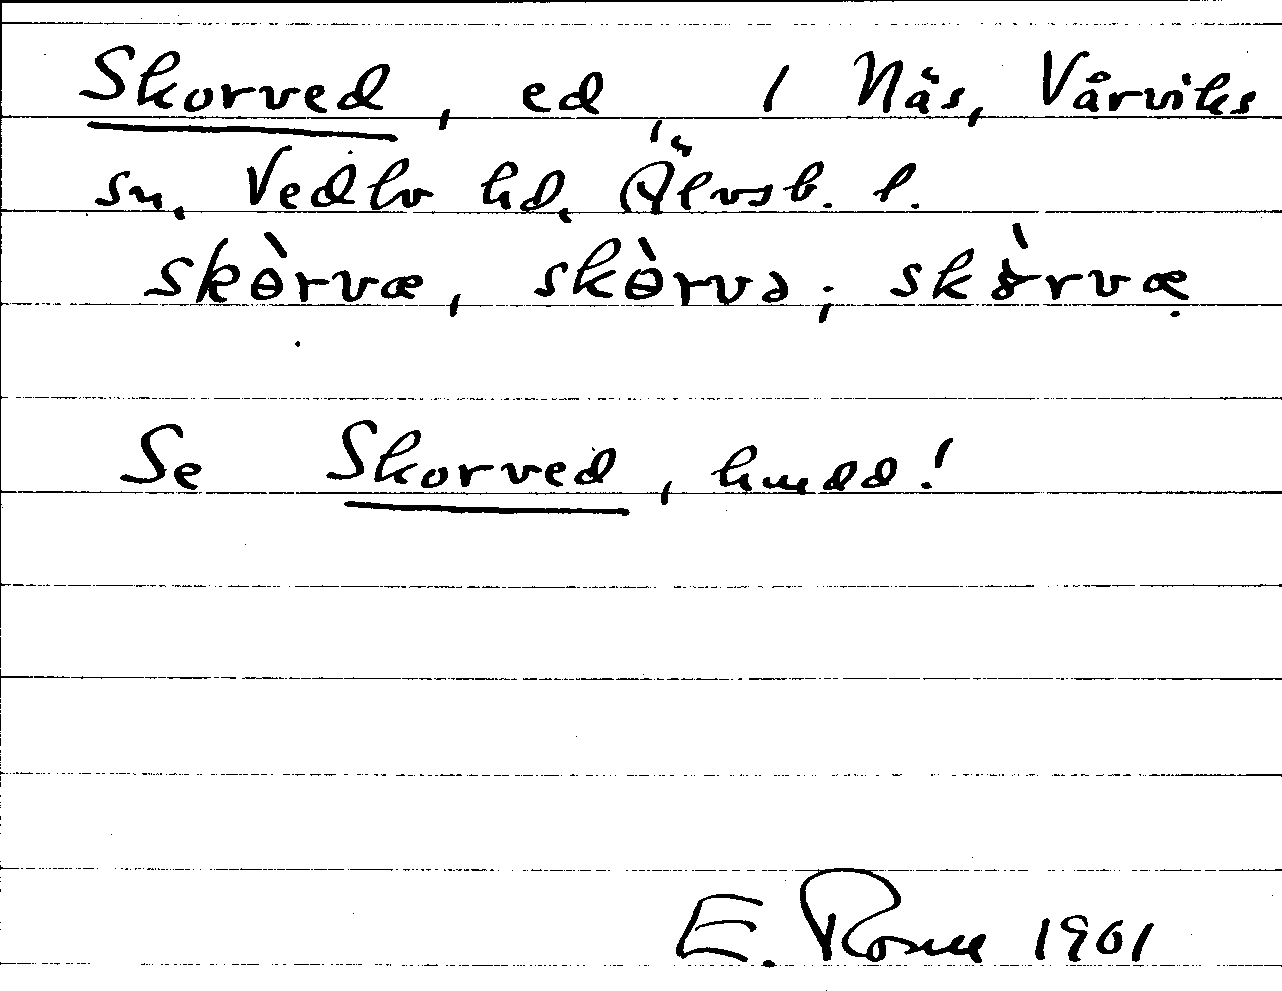 Skorved, ed, 1 Näs, Vårviks
sn, Vedbo hd, Älvsb. l.
skɵ̀rvæ, skɵ̀rvə; skɵ̀rvæ
Se Skorved, hmdd!
E. 1961